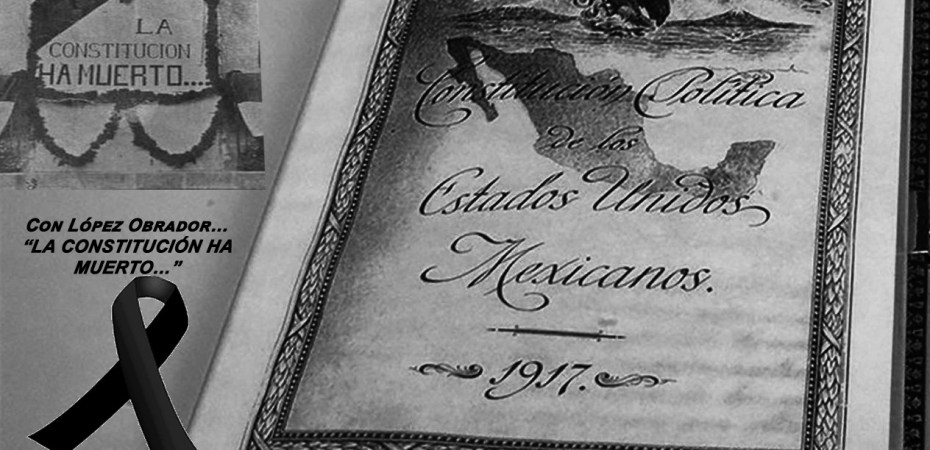 LA
CONSTITUCION
HA MUERTO...
CON LÓPEZ OBRADOR...
“LA CONSTITUCIÓN HA
MUERTO...”
Constitución Política
de los
Estados Unidos
Mexicanos.
1917.